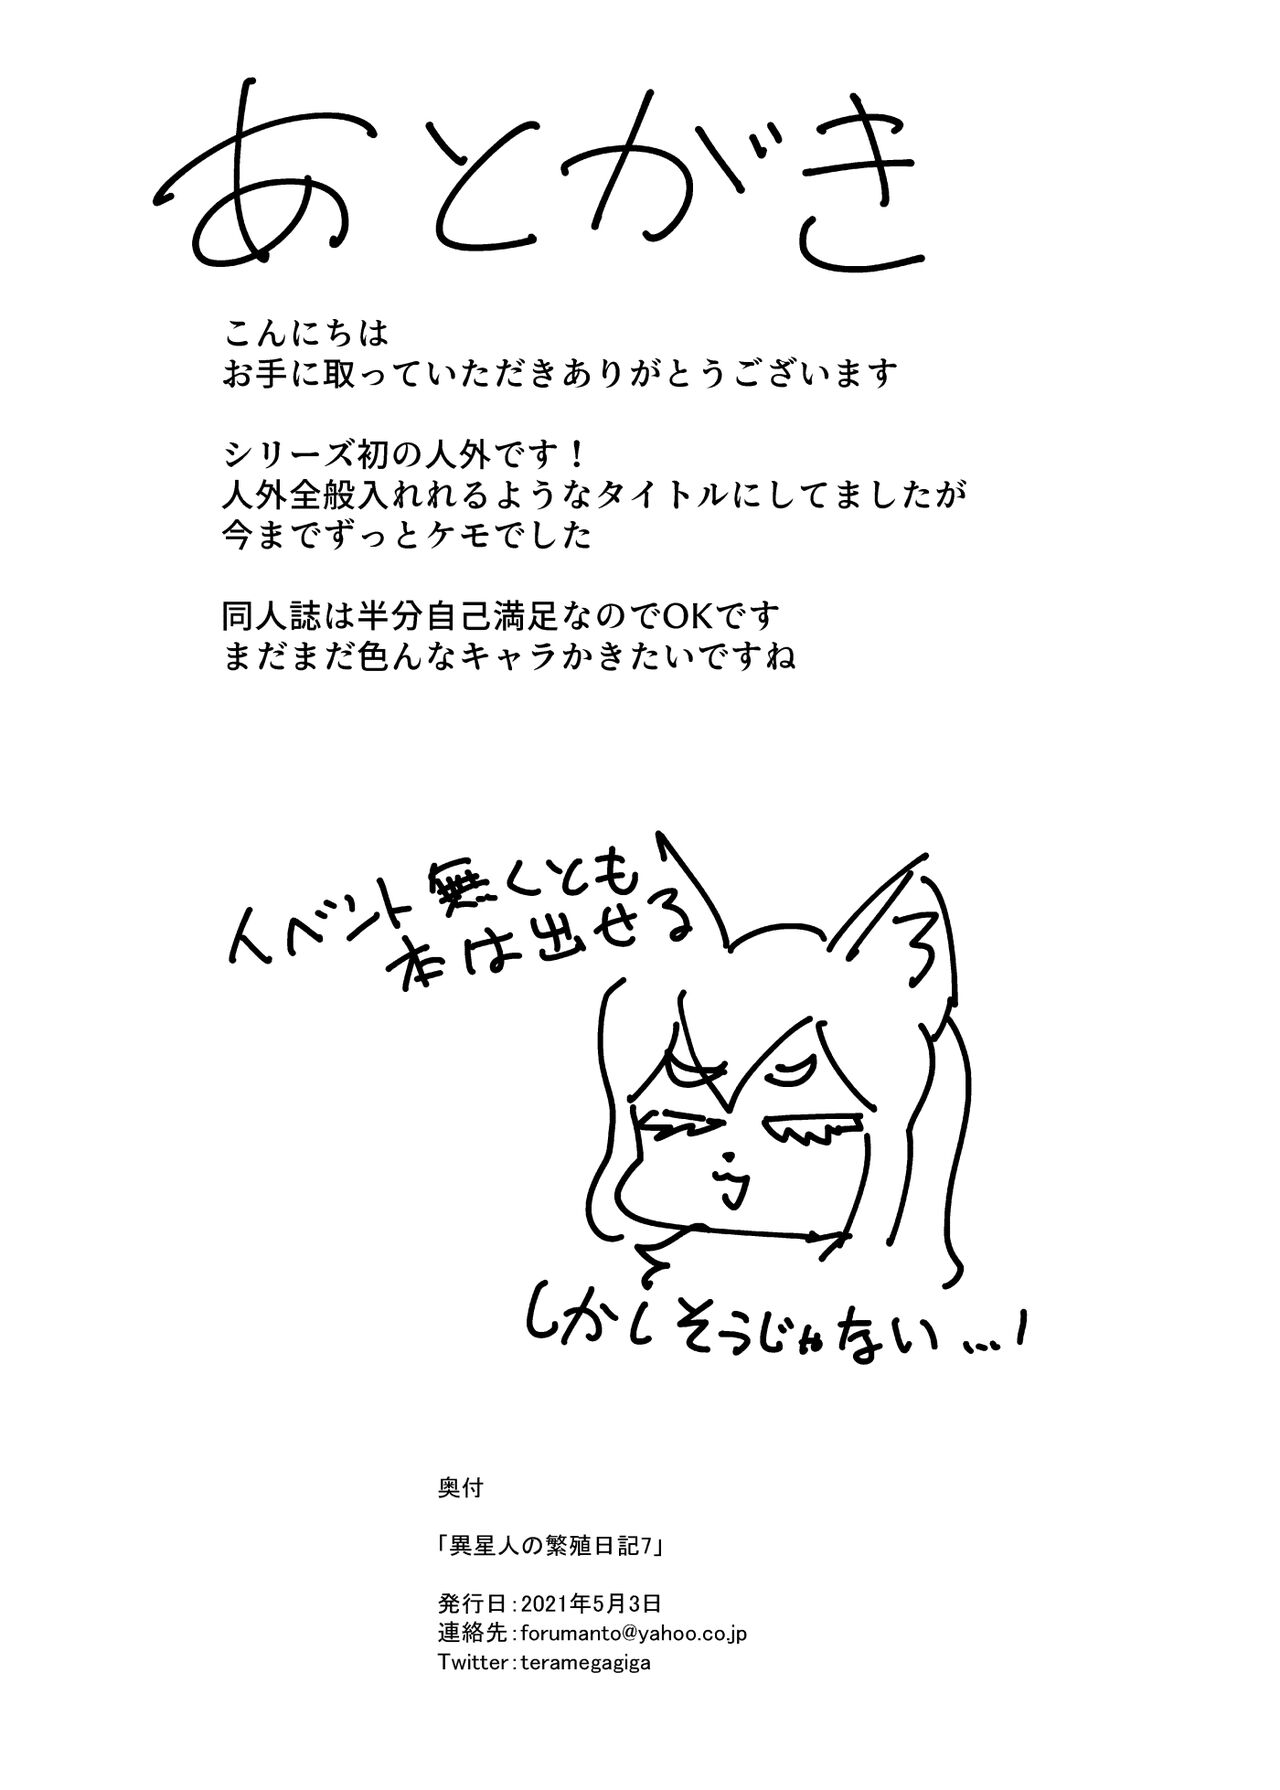 あとがき
こんにちは
お手に取っていただきありがとうございます
シリーズ初の人外です！
人外全般入れれるようなタイトルにしてましたが
今までずっとケモでした
同人誌は半分自己満足なのでOKです
まだまだ色んなキャラかきたいですね
イベント無くとも
本は出せる
しかしそうじゃない…！
奥付
「異星人の繁殖日記7」
発行日：2021年5月3日
連絡先：forumanto@yahoo.co.jp
Twitter：teramegagiga